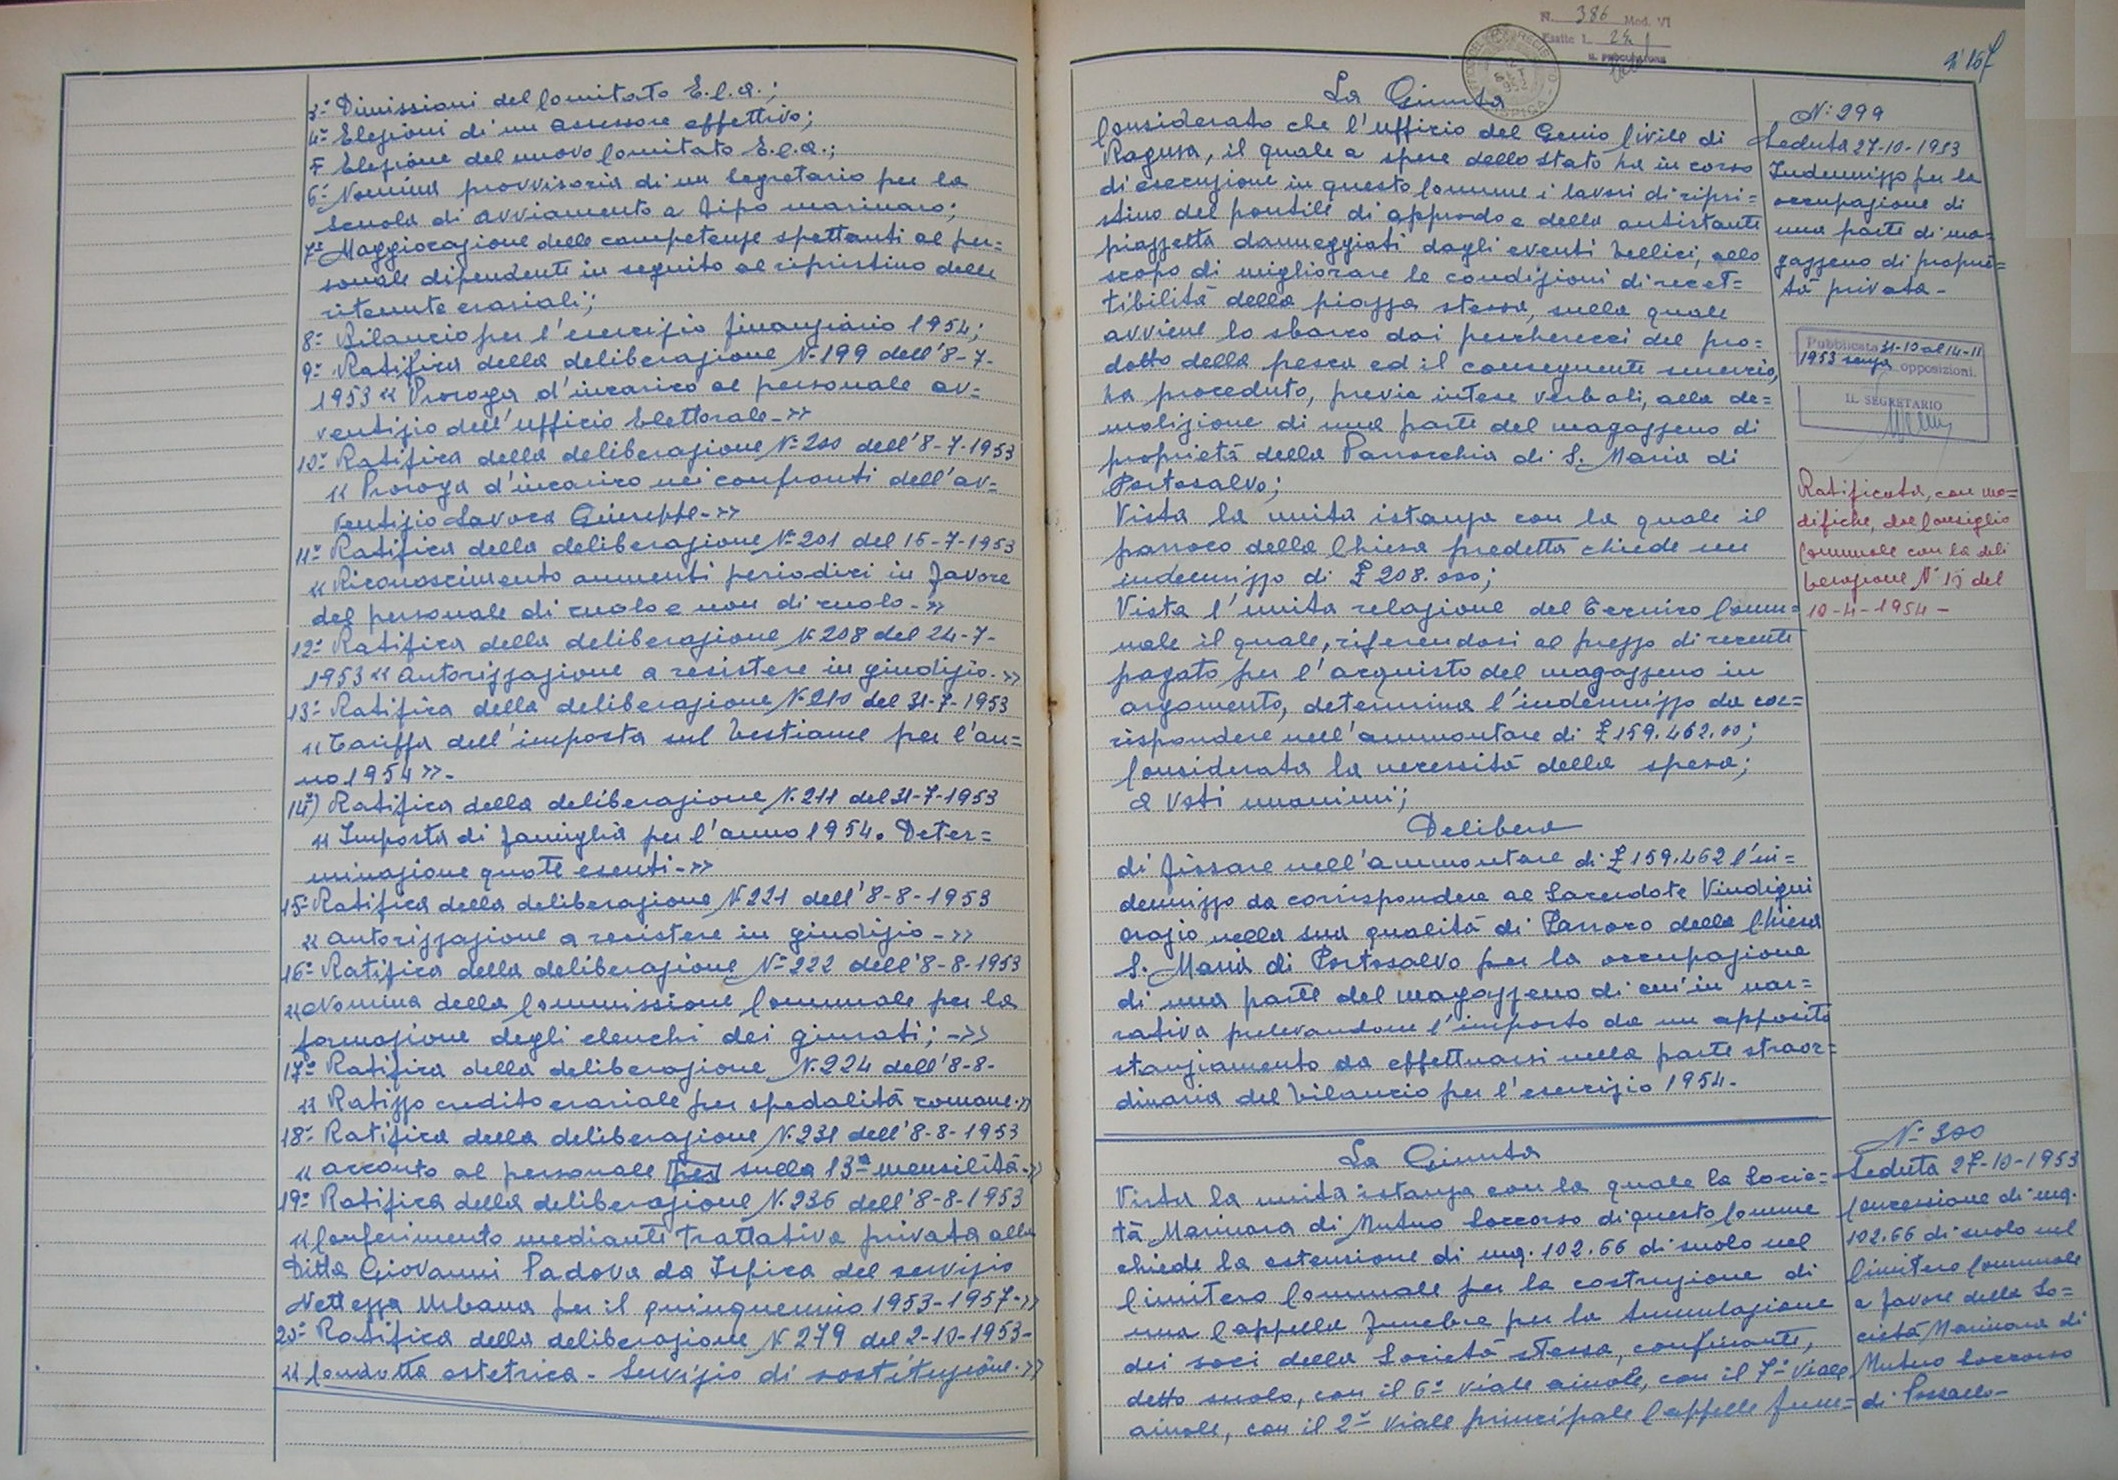 3°- Dimissioni del Comitato E.C.A.;
4°- Elezioni di un Assessore effettivo;
5 Elezione del nuovo Comitato E.C.A.;
6°- Nomina provvisoria di un Segretario per la
scuola di Avviamento a tipo marinaro;
7°- Maggiorazione delle competenze spettanti al per=
sonale dipendente in seguito al ripristino delle
ritenute erariali;
8°- Bilancio per l'esercizio finanziario 1954;
9°- Ratifica della deliberazione N° 199 dell'8-7-
1953 « Proroga d'incarico al personale av=
ventizio dell'Ufficio Elettorale-»
10°- Ratifica della deliberazione N° 200 dell'8-7-1953
« Proroga d'incarico nei confronti dell'av=
ventizio Lavora Giuseppe-»
11°- Ratifica della deliberazione N° 201 del 15-7-1953
« Riconoscimento aumenti periodici in favore
del personale di ruolo e non di ruolo-»
12°- Ratifica della deliberazione N° 208 del 24-7-
1953 « Autorizzazione a resistere in giudizio-»
13°- Ratifica della deliberazione N° 210 del 31-7-1953
« Tariffa dell'imposta sul bestiame per l'an=
no 1954 ».
14°) Ratifica della deliberazione N. 211 del 31-7-1953
« Imposta di famiglia per l'anno 1954. Deter=
minazione quote esenti-»
15°- Ratifica della deliberazione N° 221 dell'8-8-1953
« Autorizzazione a resistere in giudizio-»
16°- Ratifica della deliberazione N° 222 dell'8-8-1953
« Nomina della Commissione Comunale per la
formazione degli elenchi dei giurati;-»
17°- Ratifica della deliberazione N. 224 dell'8-8-
« Ratizzo credito erariale per spedalità romane-»
18°- Ratifica della deliberazione N. 231 dell'8-8-1953
« acconto al personale per sulla 13ª mensilità-»
19°- Ratifica della deliberazione N. 236 dell'8-8-1953
« Conferimento mediante trattativa privata alla
Ditta Giovanni Padova da Ispica del servizio
Nettezza Urbana per il quinquennio 1953-1957-»
20°- Ratifica della deliberazione N. 279 del 2-10-1953-
« Condotta ostetrica - Servizio di sostituzione-»
N. 386 Mod. VI
Esatte L. 24
IL PROCURATORE
157
La Giunta
Considerato che l'ufficio del Genio Civile di
Ragusa, il quale a spese dello stato ha in corso
di esecuzione in questo Comune i lavori di ripri=
stino del pontile di approdo e della antistante
piazzetta danneggiati dagli eventi bellici, allo
scopo di migliorare le condizioni di recet=
tibilità della piazza stessa, sulla quale
avviene lo sbarco dai pescherecci del pro=
dotto della pesca ed il conseguente smercio,
ha proceduto, previe intese verbali, alla de=
molizione di una parte del magazzeno di
proprietà della Parrocchia di S. Maria di
Portosalvo;
Vista la unita istanza con la quale il
parroco della Chiesa predetta chiede un
indennizzo di £ 208.000;
Vista l'unita relazione del Tecnico Comu=
nale il quale, riferendosi al prezzo di recente
pagato per l'acquisto del magazzeno in
argomento, determina l'indennizzo da cor=
rispondere nell'ammontare di £ 159.462.00;
Considerata la necessità della spesa;
A Voti unanimi;
Delibera
di fissare nell'ammontare di £ 159.462 l'in=
dennizzo da corrispondere al Sacerdote Vindigni
Orazio nella sua qualità di Parroco della Chiesa
S. Maria di Portosalvo per la occupazione
di una parte del magazzeno di cui in nar=
rativa prelevandone l'importo da un apposito
stanziamento da effettuarsi nella parte straor=
dinaria del bilancio per l'esercizio 1954-
La Giunta
Vista la unita istanza con la quale la Socie=
tà Marinara di Mutuo Soccorso di questo Comune
chiede la estensione di mq. 102.66 di suolo nel
Cimitero Comunale per la costruzione di
una Cappella Funebre per la tumulazione
dei soci della Società stessa, confinante,
detto suolo, con il 6° viale aiuole, con il 7° viale
aiuole, con il 2° viale principale Cappelle fune=
N° 299
Seduta 27-10-1953
Indennizzo per la
occupazione di
una parte di ma=
gazzeno di proprie=
tà privata-
Pubblicata 31-10 al 14-11
1953 senza opposizioni.
IL SEGRETARIO
Ratificata, con mo=
difiche, dal Consiglio
Comunale con la deli
berazione N° 15 del
10-4-1954-
N° 300
Seduta 27-10-1953
Concessione di mq.
102.66 di suolo nel
Cimitero Comunale
a favore della So=
cietà Marinara di
Mutuo Soccorso
di Pozzallo-